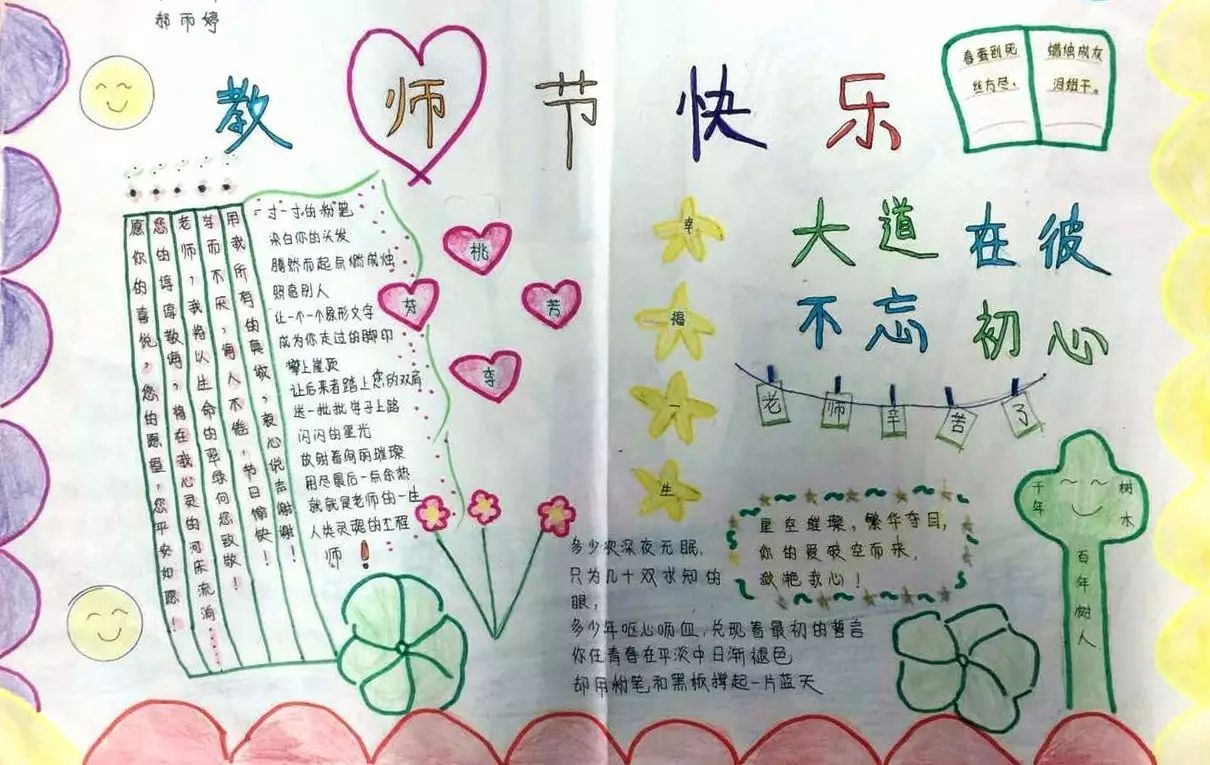 郝雨婷
教师节快乐
春蚕到死
丝方尽,
蜡烛成灰
泪始干。
用我所有的真诚,衷心说声谢谢!
学而不厌,诲人不倦,节日愉快!
老师,我将以生命的翠绿向您致敬!
您的谆谆教诲,将在我心灵的河床流淌……
愿你的喜悦,您的愿望,您平安如愿!
一寸一寸的粉笔
染白你的头发
腾然而起点燃成烛
照亮别人
让一个一个象形文字
成为你走过的脚印
攀上崖顶
让后来者踏上您的双肩
送一批批学子上路
闪闪的星光
放射着绚丽璀璨
用尽最后一点余热
就就是老师的一生
人类灵魂的工程
师!
桃
芬
芳
李
幸
福
一
生
大道在彼
不忘初心
老师辛苦了
星空璀璨,繁华夺目,
你的爱破空而来,
激滟我心!
多少次深夜无眠,
只为几十双求知的
眼,
多少年呕心呖血,兑现着最初的誓言
你任青春在平淡中日渐褪色
却用粉笔和黑板撑起一片蓝天
十年
树木
百年树人